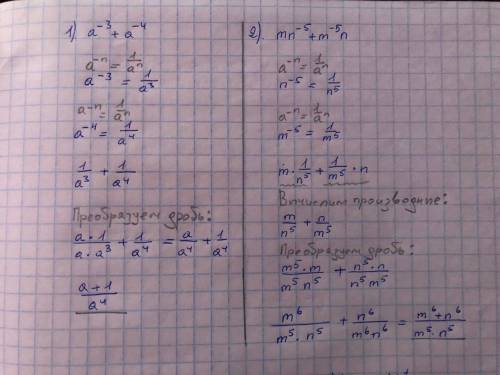 1) a⁻³ + a⁻⁴
a⁻ⁿ = 1/aⁿ
a⁻³ = 1/a³
a⁻ⁿ = 1/aⁿ
a⁻⁴ = 1/a⁴
1/a³ + 1/a⁴
Преобразуем дробь:
a·1/a·a³ + 1/a⁴ = a/a⁴ + 1/a⁴
a+1/a⁴
2). mn⁻⁵ + m⁻⁵n
a⁻ⁿ = 1/aⁿ
n⁻⁵ = 1/n⁵
a⁻ⁿ = 1/aⁿ
m⁻⁵ = 1/m⁵
m · 1/n⁵ + 1/m⁵ · n
Вычислим производные:
m/n⁵ + n/m⁵
Преобразуем дробь:
m⁵·m/m⁵n⁵ + n⁵·n/n⁵m⁵
m⁶/m⁵·n⁵ + n⁶/m⁶n⁶ = m⁶+n⁶/m⁵·n⁵